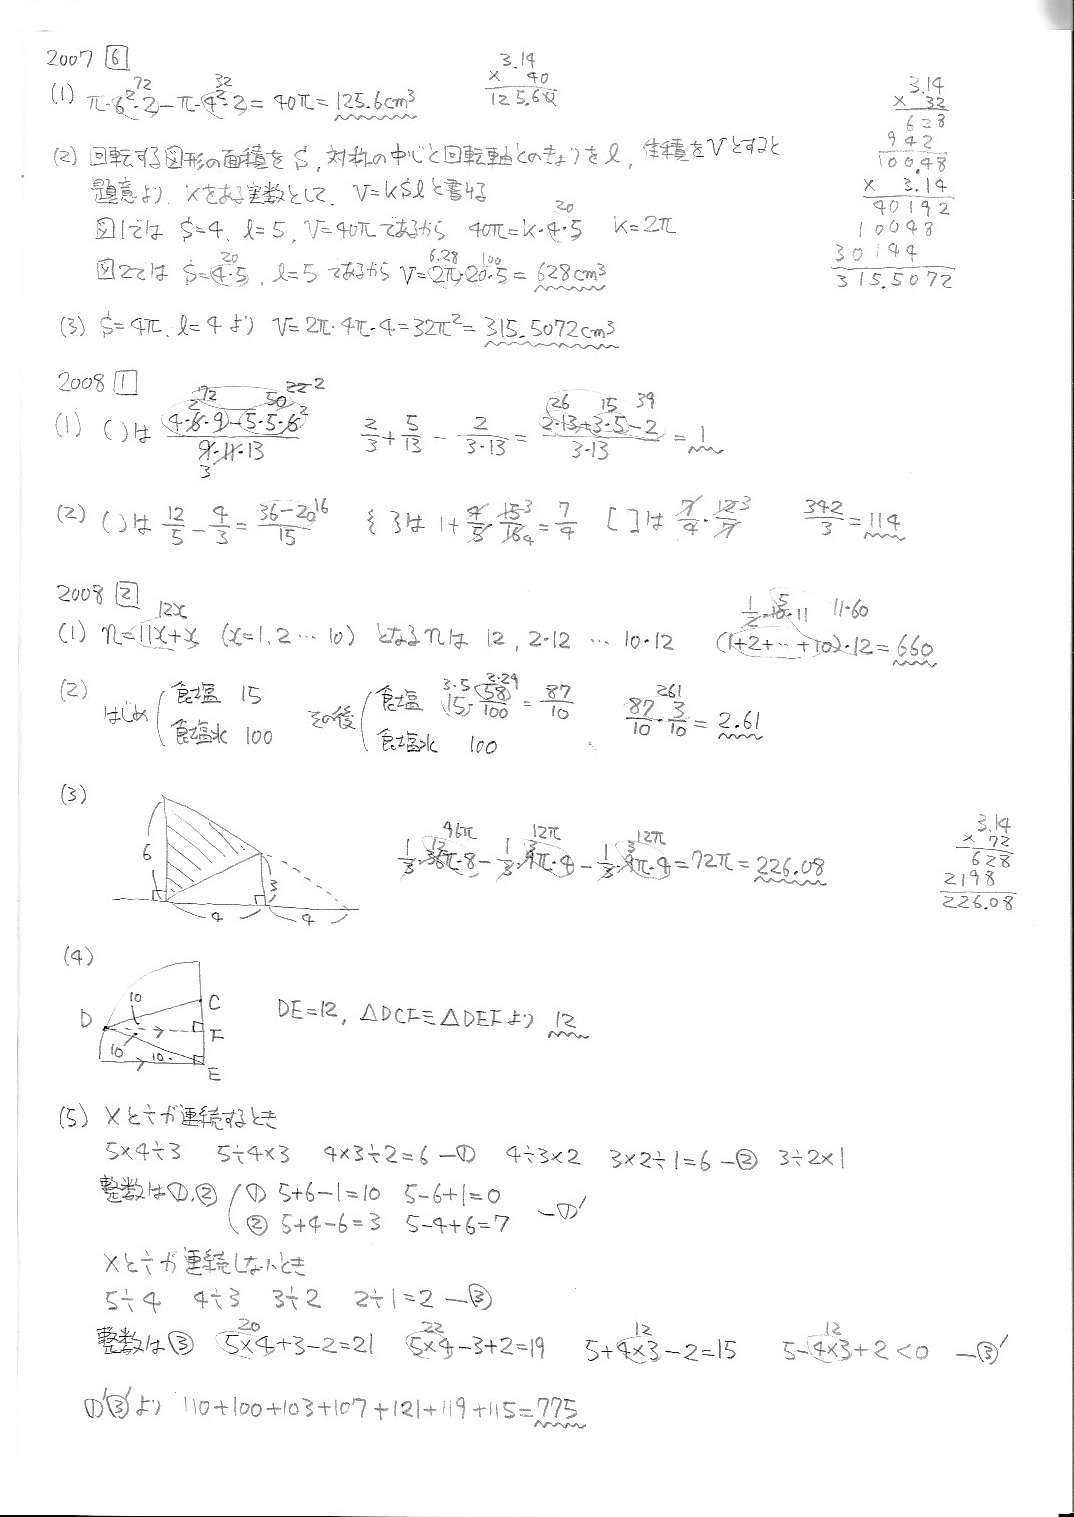 2007 6
(1) π·6²·2-π·4²·2=40π=125.6cm³
72 32
3.14
× 40
125.60
3.14
× 32
628
942
100.48
× 3.14
40192
10048
30144
315.5072
(2) 回転する図形の面積をS, 対称の中心と回転軸とのきょりをl, 体積をVとすると
題意より、kをある実数として、V=kSlと書ける
図1では S=4、l=5, V=40πであるから 40π=k·4·5 k=2π
20
図2では S=4·5, l=5 であるから V=2π·20·5=628cm³
20 6.28 100
(3) S=4π、l=4 より V=2π·4π·4=32π²=315.5072cm³
2008 1
(1) ( )は (4·8·9-5·5·6)/(9·11·13) 2/3+5/13-2/(3·13)=(2·13+3·5-2)/(3·13)=1
26 15 39
(2) ( )は 12/5-4/3=(36-20)/15 { }は 1+4/5·15/16=7/4 [ ]は 7/4·12/7 342/3=114
16
2008 2
(1) n=11x+x (x=1,2…10) となるnは 12, 2·12 … 10·12 (1+2+…+10)·12=660
12x 1/2·10·11 5 11·60
(2) はじめ 食塩 15 その後 食塩 15·58/100=87/10 87/10·3/10=2.61
3·5 2·29 261
食塩水 100 食塩水 100
(3)
6 3 4 4
1/3·36π·8-1/3·9π·4-1/3·9π·4=72π=226.08
96π 12π 12π
3.14
× 72
628
2198
226.08
(4)
D C F E 10 10 10
DE=12, △DCF≡△DEFより 12
(5) ×と÷が連続するとき
5×4÷3 5÷4×3 4×3÷2=6-① 4÷3×2 3×2÷1=6-② 3÷2×1
整数は①,② ① 5+6-1=10 5-6+1=0
② 5+4-6=3 5-4+6=7 -①'
×と÷が連続しないとき
5÷4 4÷3 3÷2 2÷1=2-③
整数は③ 5×4+3-2=21 5×4-3+2=19 5+4×3-2=15 5-4×3+2<0 -③'
20 22 12 12
①'③'より 110+100+103+107+121+119+115=775